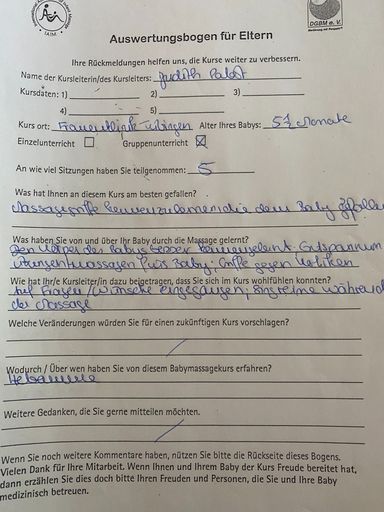 I.A.I.M.
DGBM e. V.
Auswertungsbogen für Eltern
Ihre Rückmeldungen helfen uns, die Kurse weiter zu verbessern.
Name der Kursleiterin/des Kursleiters: Judith Pabst
Kursdaten: 1) 2) 3)
4) 5)
Kurs ort: Frauenklinik Tübingen Alter Ihres Babys: 5 1/2 Monate
Einzelunterricht Gruppenunterricht X
An wie viel Sitzungen haben Sie teilgenommen: 5
Was hat Ihnen an diesem Kurs am besten gefallen?
Massagegriffe kennenzulernen die dem Baby gefallen
Was haben Sie von und über Ihr Baby durch die Massage gelernt?
Den Körper des Babys besser kennengelernt. Entspannung
für Baby; Griffe gegen Koliken
Wie hat Ihr/e Kursleiter/in dazu beigetragen, dass Sie sich im Kurs wohlfühlen konnten?
Auf Fragen / Wünsche eingegangen; während
der Massage
Welche Veränderungen würden Sie für einen zukünftigen Kurs vorschlagen?
/
Wodurch / Über wen haben Sie von diesem Babymassagekurs erfahren?
Hebamme
Weitere Gedanken, die Sie gerne mitteilen möchten.
/
Wenn Sie noch weitere Kommentare haben, nützen Sie bitte die Rückseite dieses Bogens.
Vielen Dank für Ihre Mitarbeit. Wenn Ihnen und Ihrem Baby der Kurs Freude bereitet hat,
dann erzählen Sie dies doch bitte Ihren Freunden und Personen, die Sie und Ihre Baby
medizinisch betreuen.